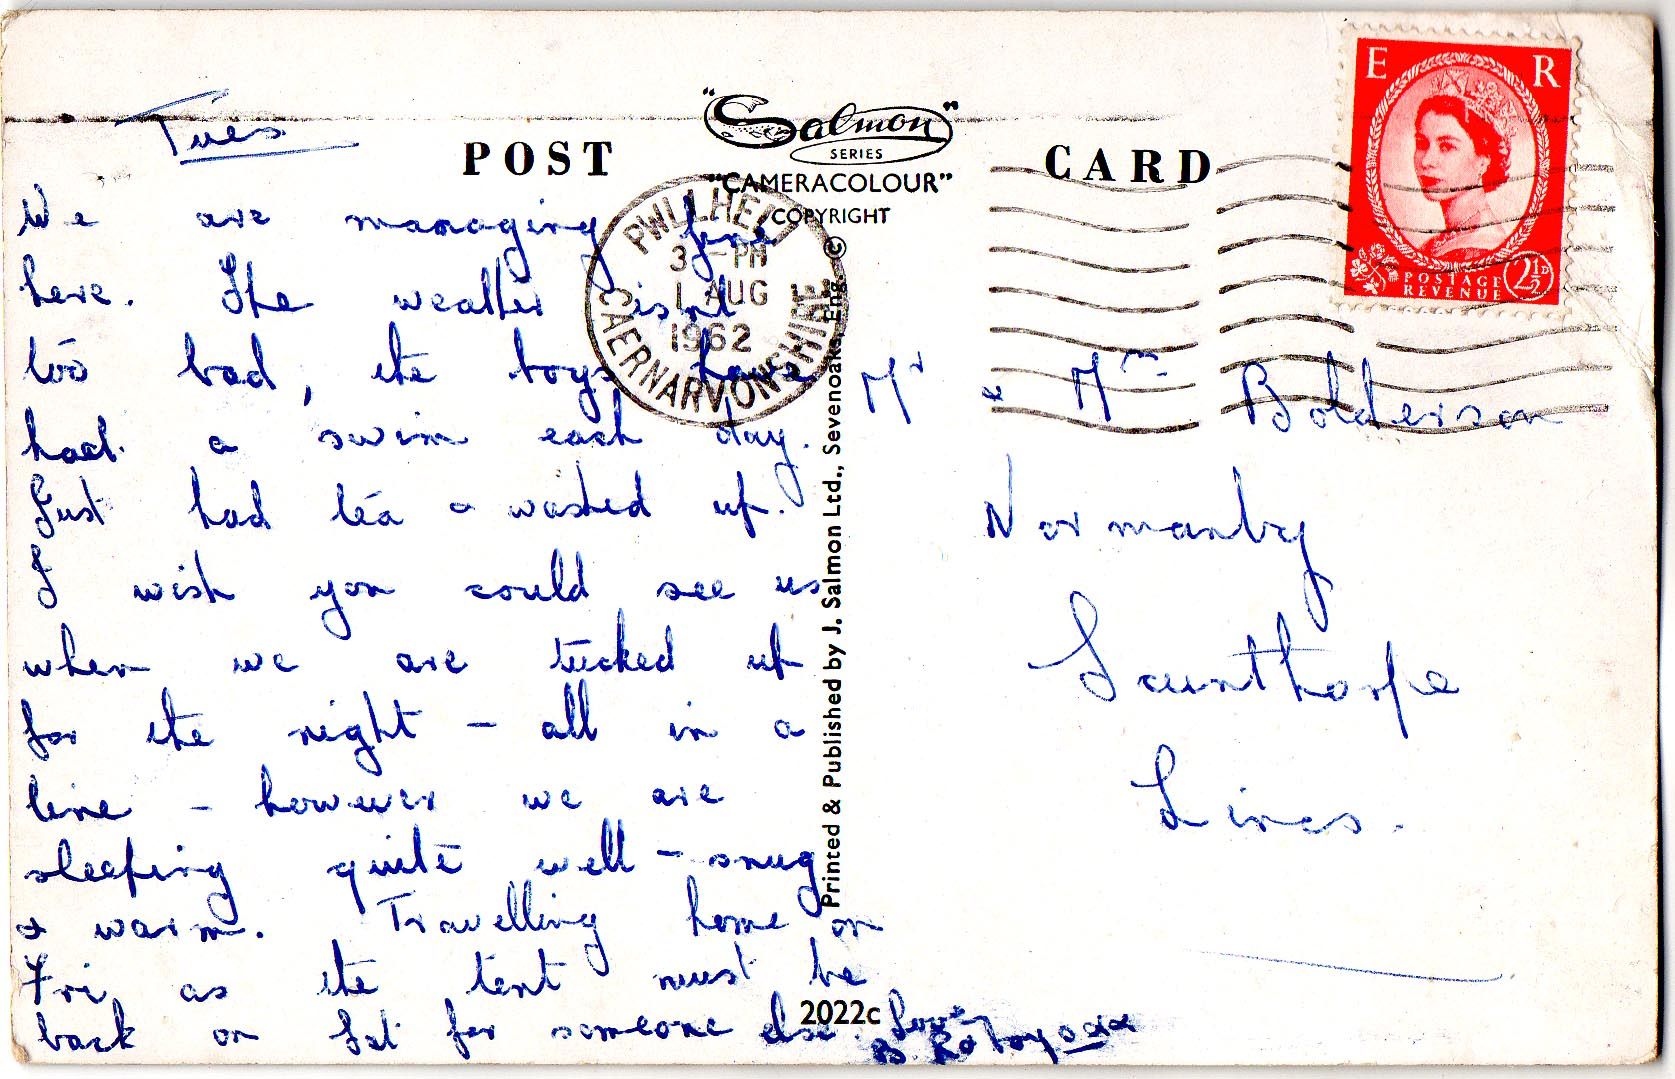 Tues
We are managing fine
here. The weather isnt
too bad, the boys have
had a swim each day.
Just had tea & washed up.
I wish you could see us
when we are tucked up
for the night - all in a
line - however we are
sleeping quite well - snug
& warm. Travelling home on
Fri, as the tent must be
back on Sat for someone else. Love
B. & boys xxx
POST CARD
"Salmon"
SERIES
"CAMERACOLOUR"
COPYRIGHT
PWLLHELI
3 - PM
1 AUG
1962
CAERNARVONSHIRE
Printed & Published by J. Salmon Ltd., Sevenoaks, Eng. ©
2022c
E R
POSTAGE
REVENUE
2½D
Mr & Mrs Bolderson
Normanby
Scunthorpe
Lincs.